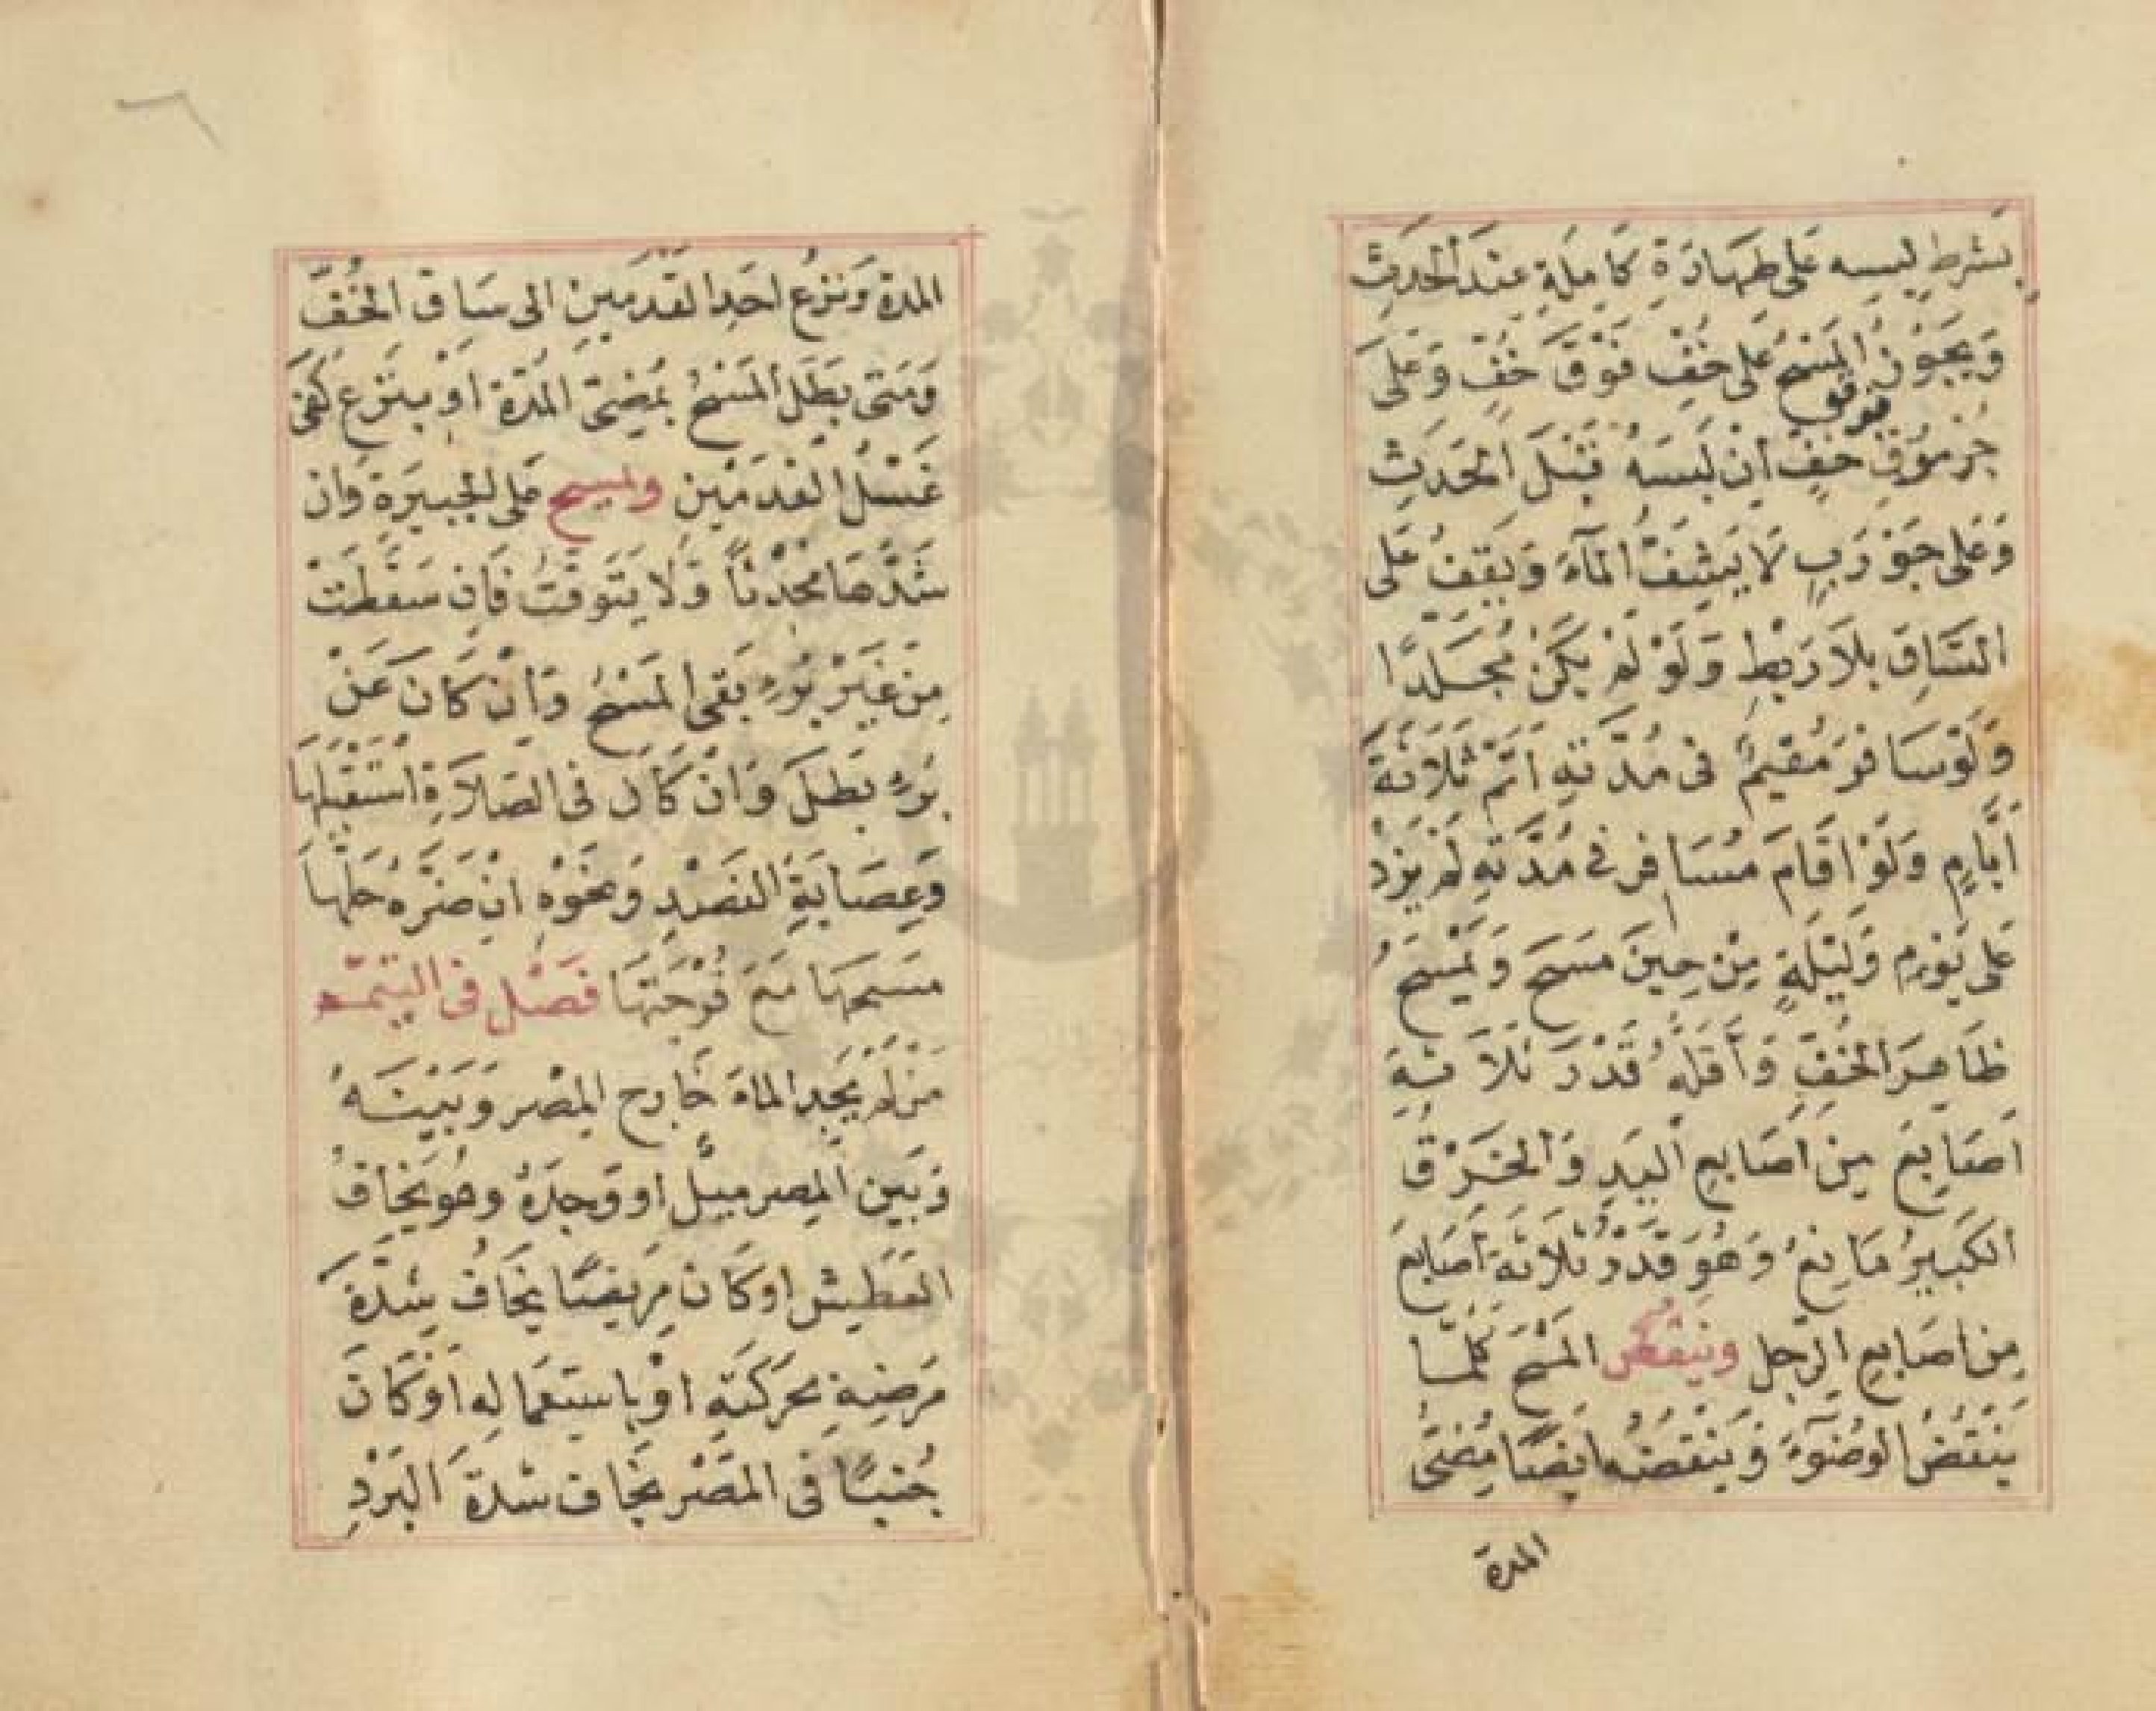 بشرط لبسه على طهارة كاملة عند الحدث
ويجوز المسح على خف فوق خف وعلى
جرموق فوق خف ان لبسه قبل الحدث
وعلى جورب لا ينشف الماء ويقف على
الساق بلا ربط ولو لم يكن مجلدا
ولو سافر مقيم فى مدته اتم ثلاثة
ايام ولو اقام مسافر فى مدته لم يزد
على يوم وليلة من حين مسح ويمسح
ظاهر الخف واقله قدر ثلاثة
اصابع من اصابع اليد والخرق
الكبير مانع وهو قدر ثلاثة اصابع
من اصابع الرجل وينقض المسح كلما
ينقض الوضوء وينقضه ايضا مضى
المدة
٦
المدة ونزع احد القدمين الى ساق الخف
ومتى بطل المسح بمضى المدة او بنزع كفى
غسل القدمين ويمسح على الجبيرة وان
شدها محدثا ولا يتوقت فان سقطت
من غير برء بقى المسح وان كان عن
برء بطل وان كان فى الصلاة استقبلها
وعصابة الفصد ونحوه ان ضره حلها
مسحها مع فرجتها فصل فى التيمم
من لم يجد الماء خارج المصر وبينه
وبين المصر ميل او وجده وهو يخاف
العطش او كان مريضا يخاف شدة
مرضه بحركته او باستعماله او كان
جنبا فى المصر يخاف شدة البرد